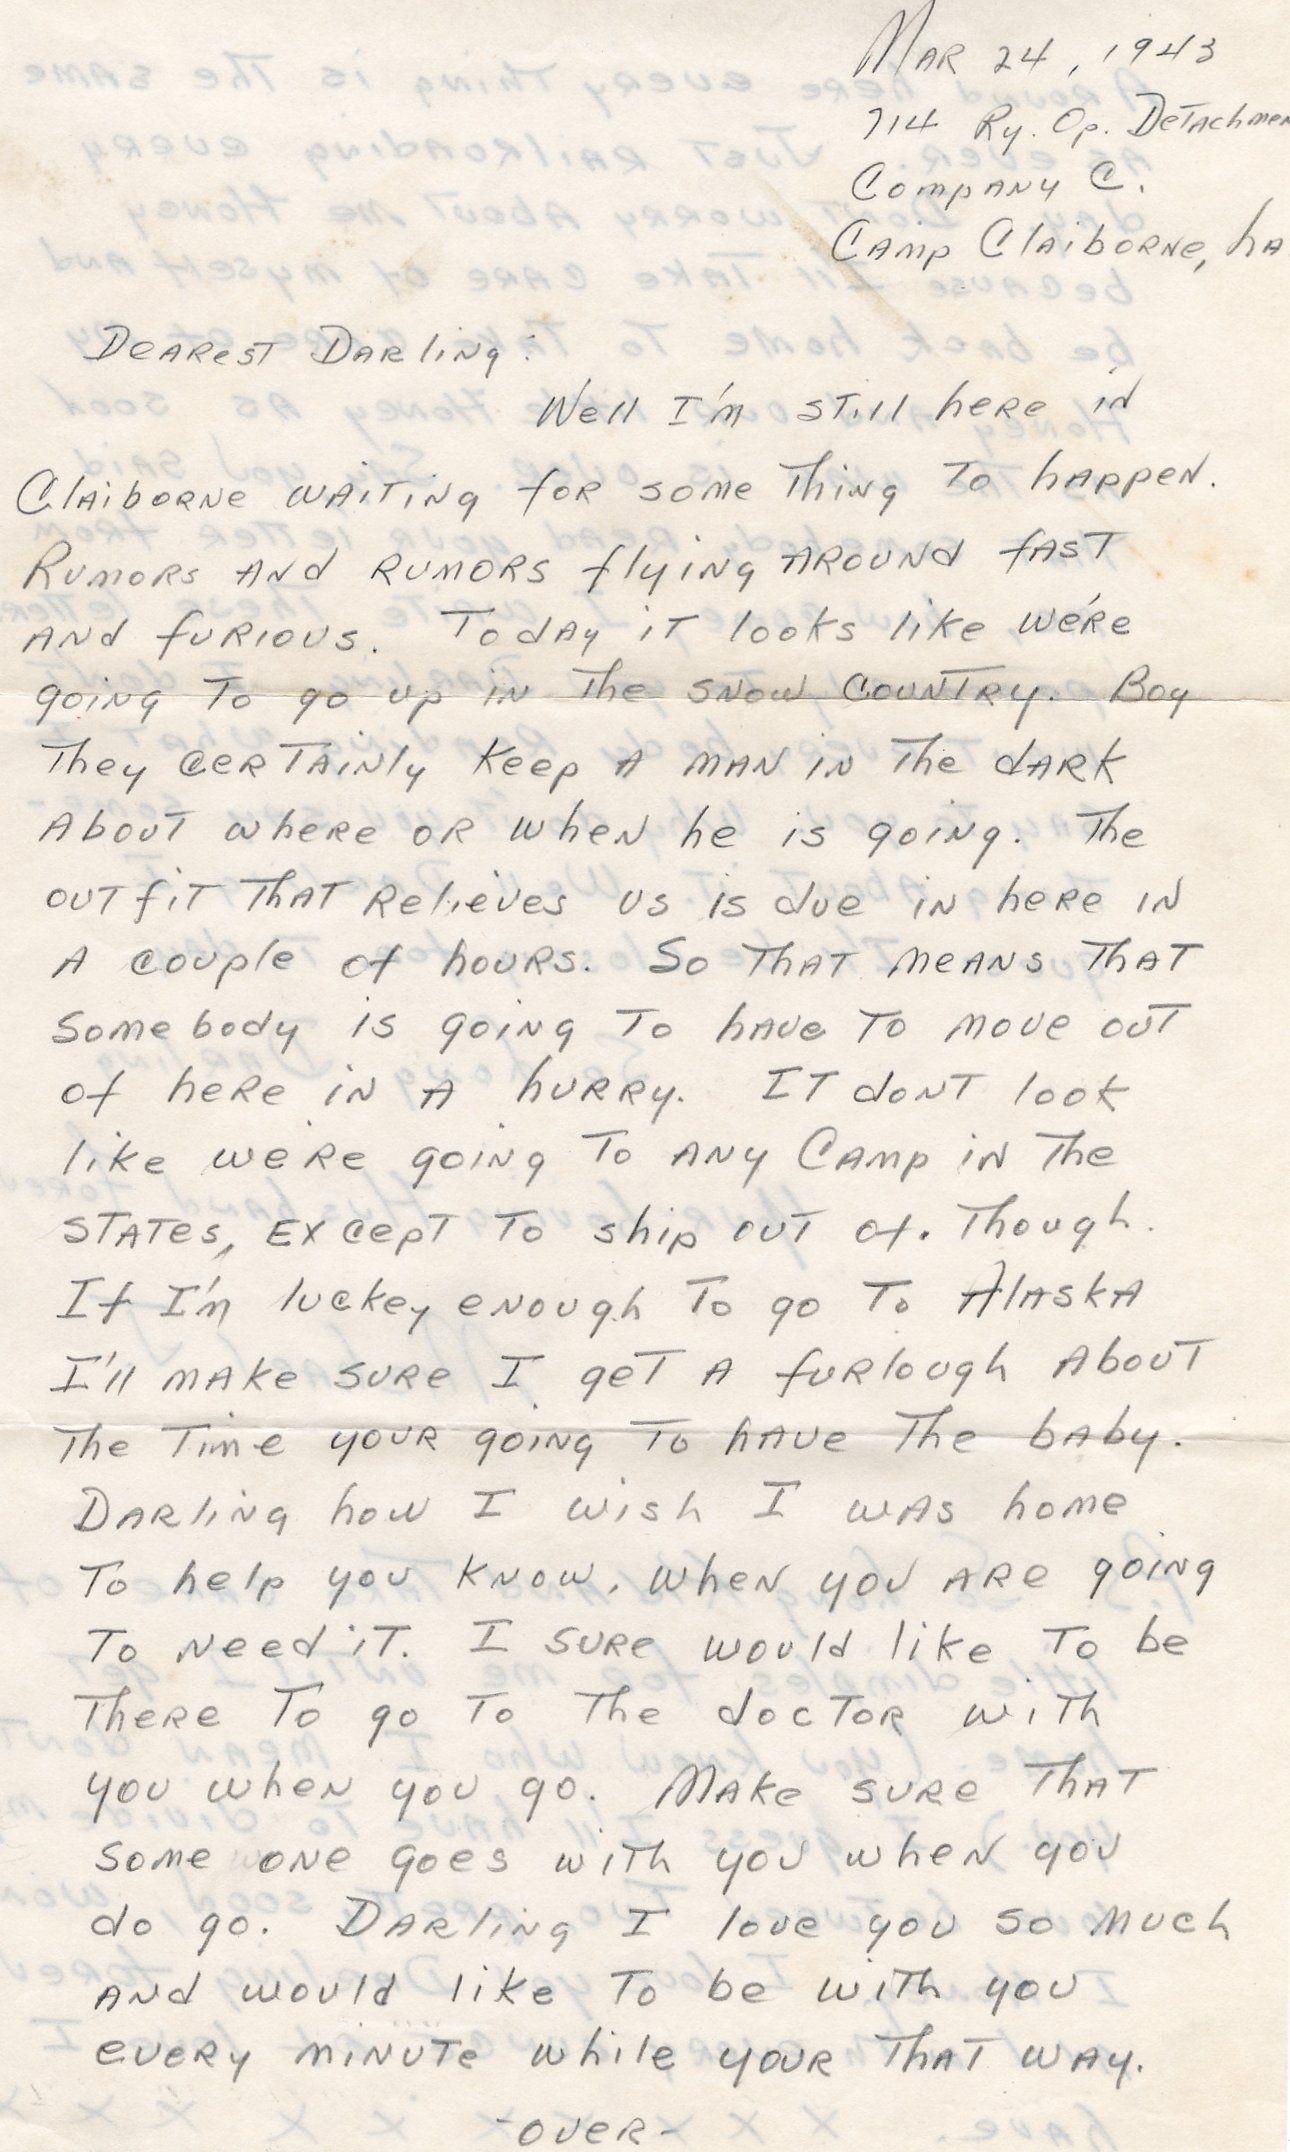 Mar 24, 1943
714 Ry. Op. Detachmen
Company C.
Camp Claiborne, La
Dearest Darling:
Well I'm still here in
Claiborne waiting for some thing to happen.
Rumors and rumors flying around fast
and furious. Today it looks like we're
going to go up in the snow country. Boy
they certainly keep a man in the dark
about where or when he is going. The
outfit that relieves us is due in here in
a couple of hours. So that means that
somebody is going to have to move out
of here in a hurry. It dont look
like we're going to any Camp in the
States, except to ship out of. though.
If I'm luckey enough to go to Alaska
I'll make sure I get a furlough about
the time your going to have the baby.
Darling how I wish I was home
to help you know, when you are going
to need it. I sure would like to be
there to go to the doctor with
you when you go. Make sure that
some one goes with you when you
do go. Darling I love you so much
and would like to be with you
every minute while your that way.
-over-